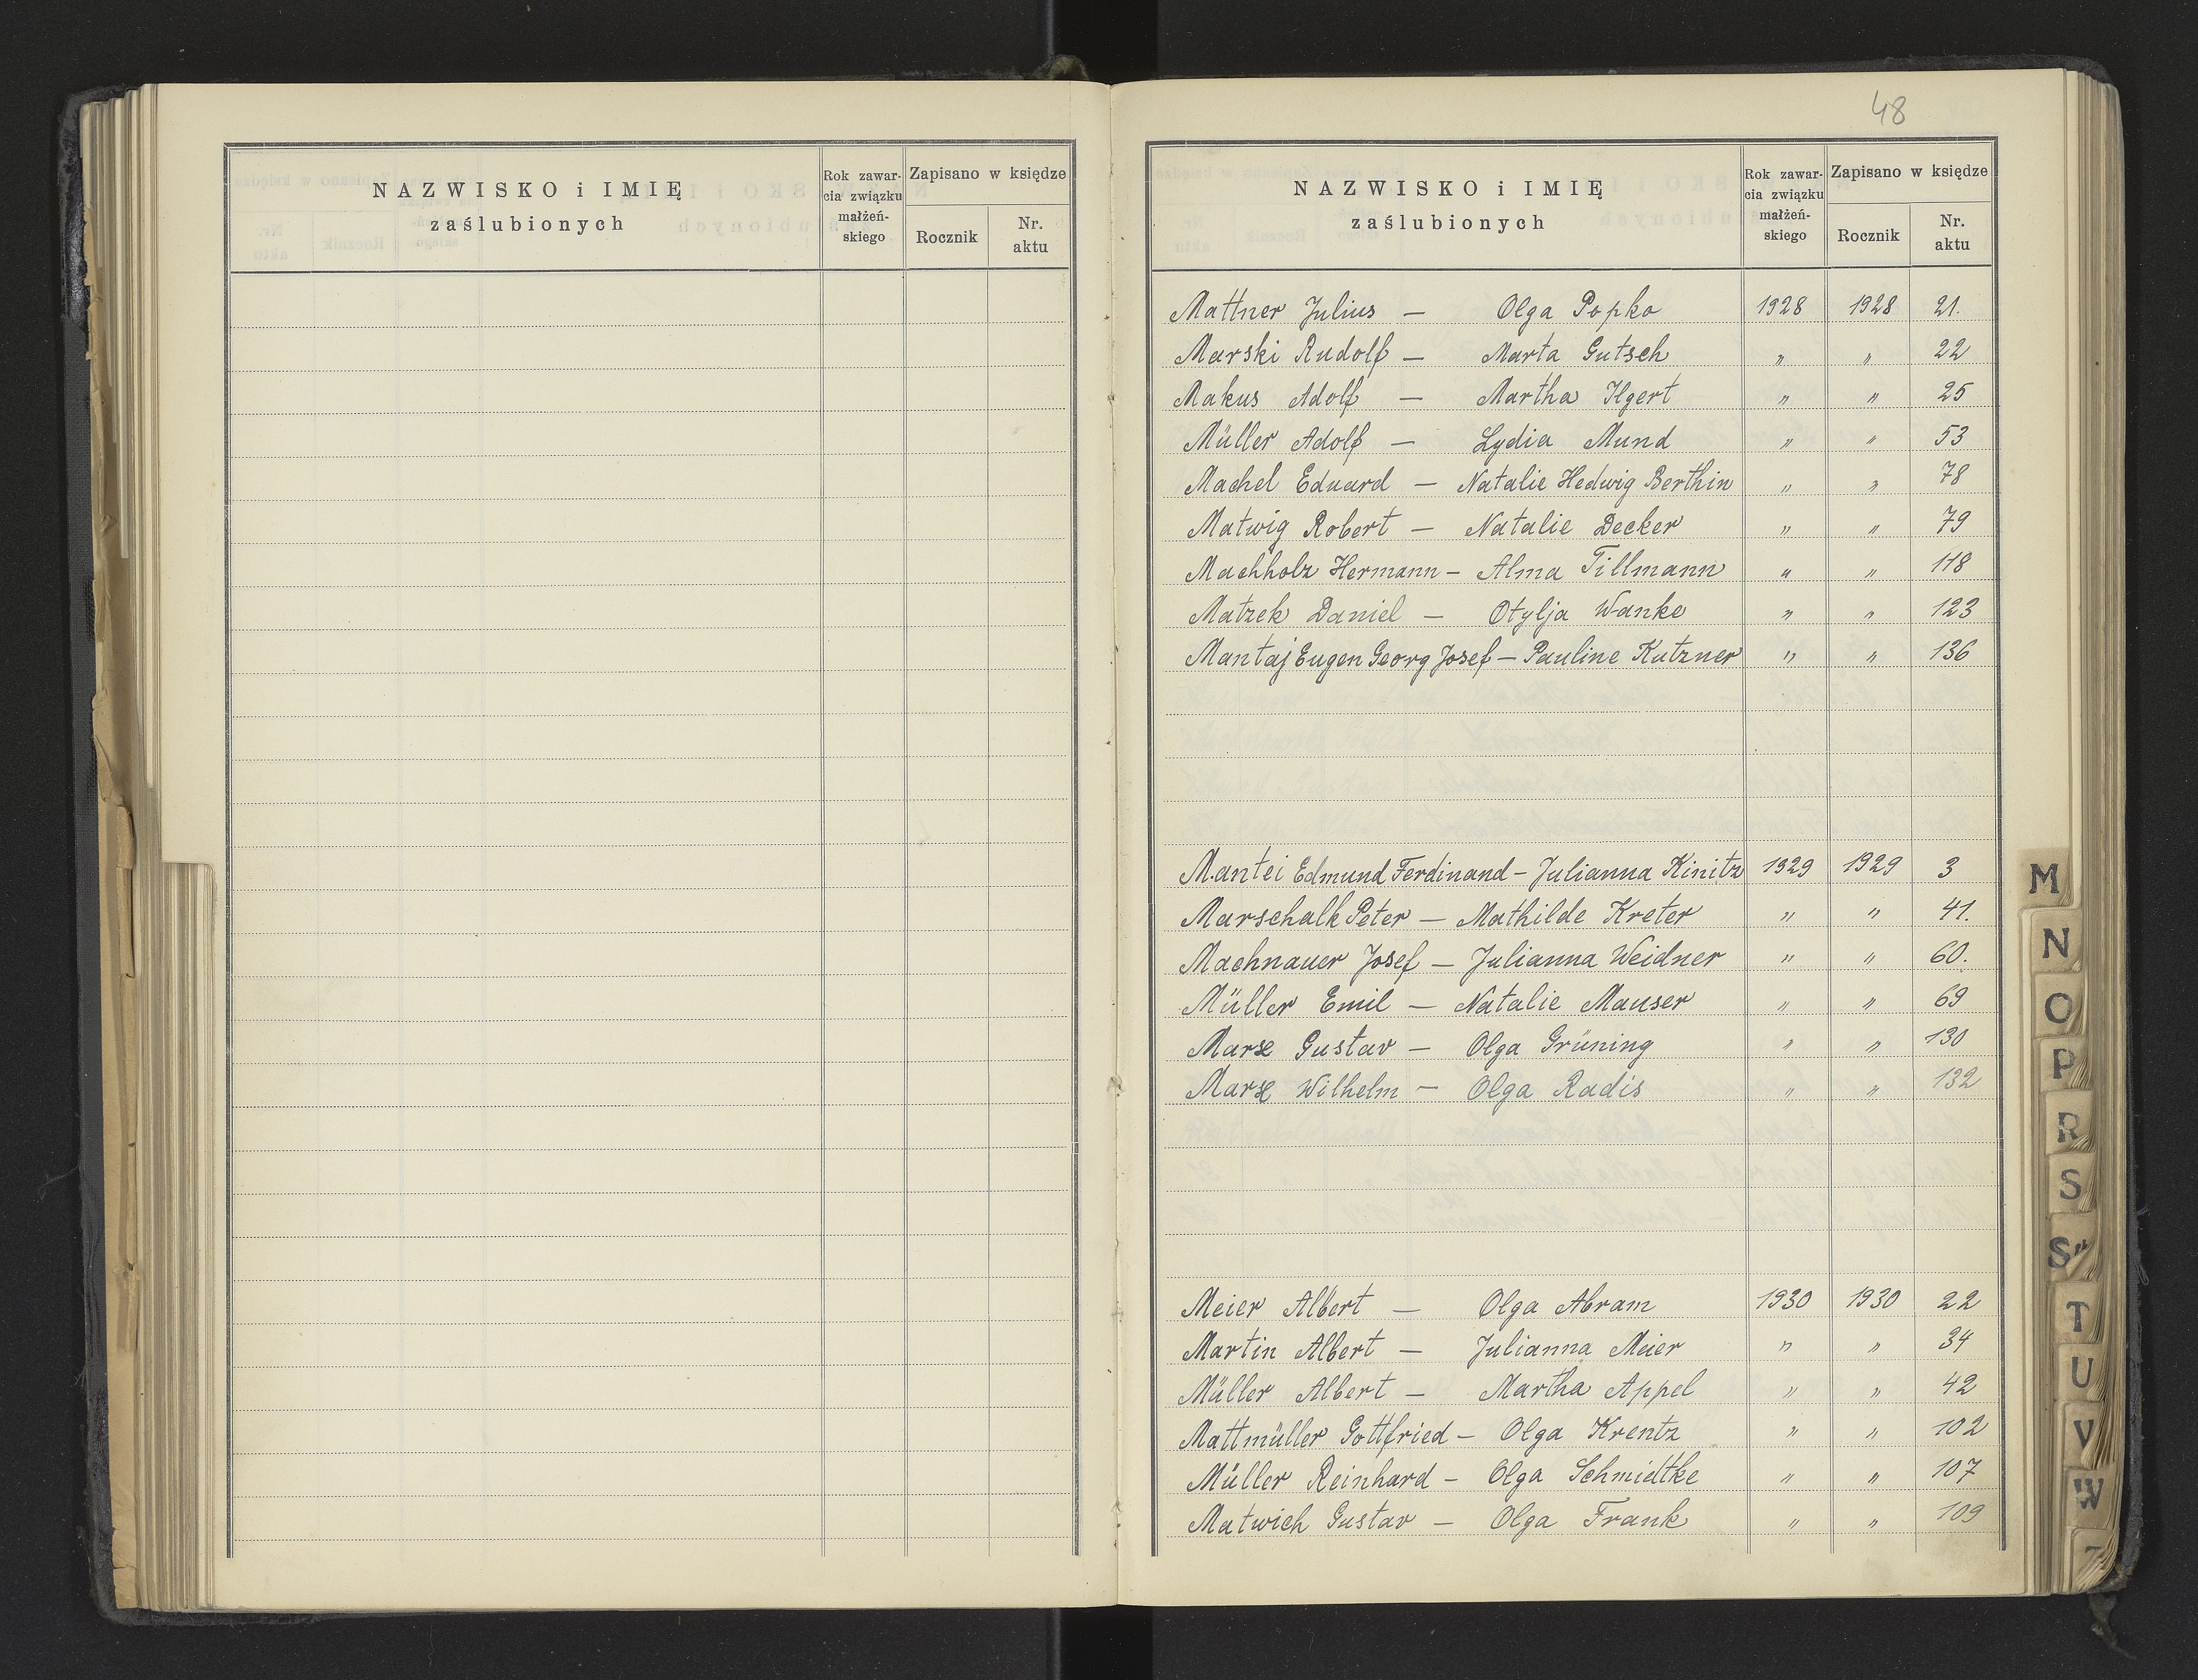 NAZWISKO i IMIĘ
zaślubionych
Rok zawar-
cia związku
małżeń-
skiego
Zapisano w księdze
Rocznik
Nr.
aktu
48
NAZWISKO i IMIĘ
zaślubionych
Rok zawar-
cia związku
małżeń-
skiego
Zapisano w księdze
Rocznik
Nr.
aktu
Mattner Julius — Olga Popko 1928 1928 21.
Marski Rudolf — Marta Gutsch " " 22
Makus Adolf — Martha Ilgert " " 25
Müller Adolf — Lydia Mund " " 53
Machel Eduard — Natalie Hedwig Berthin " " 78
Matwig Robert — Natalie Decker " " 79
Machholz Hermann — Alma Tillmann " " 118
Matzek Daniel — Otylja Wanke " " 123
Mantaj Eugen Georg Josef — Pauline Kutzner " " 136
Mantei Edmund Ferdinand — Julianna Kinitz 1929 1929 3
Marschalk Peter — Mathilde Kreter " " 41.
Machnauer Josef — Julianna Weidner " " 60.
Müller Emil — Natalie Mauser " " 69
Marx Gustav — Olga Grüning " " 130
Marx Wilhelm — Olga Radis " " 132
Meier Albert — Olga Abram 1930 1930 22
Martin Albert — Julianna Meier " " 34
Müller Albert — Martha Appel " " 42
Mattmüller Gottfried — Olga Krentz " " 102
Müller Reinhard — Olga Schmidtke " " 107
Matwich Gustav — Olga Frank " " 109
M
N
O
P
R
S
S"
T
U
V
W